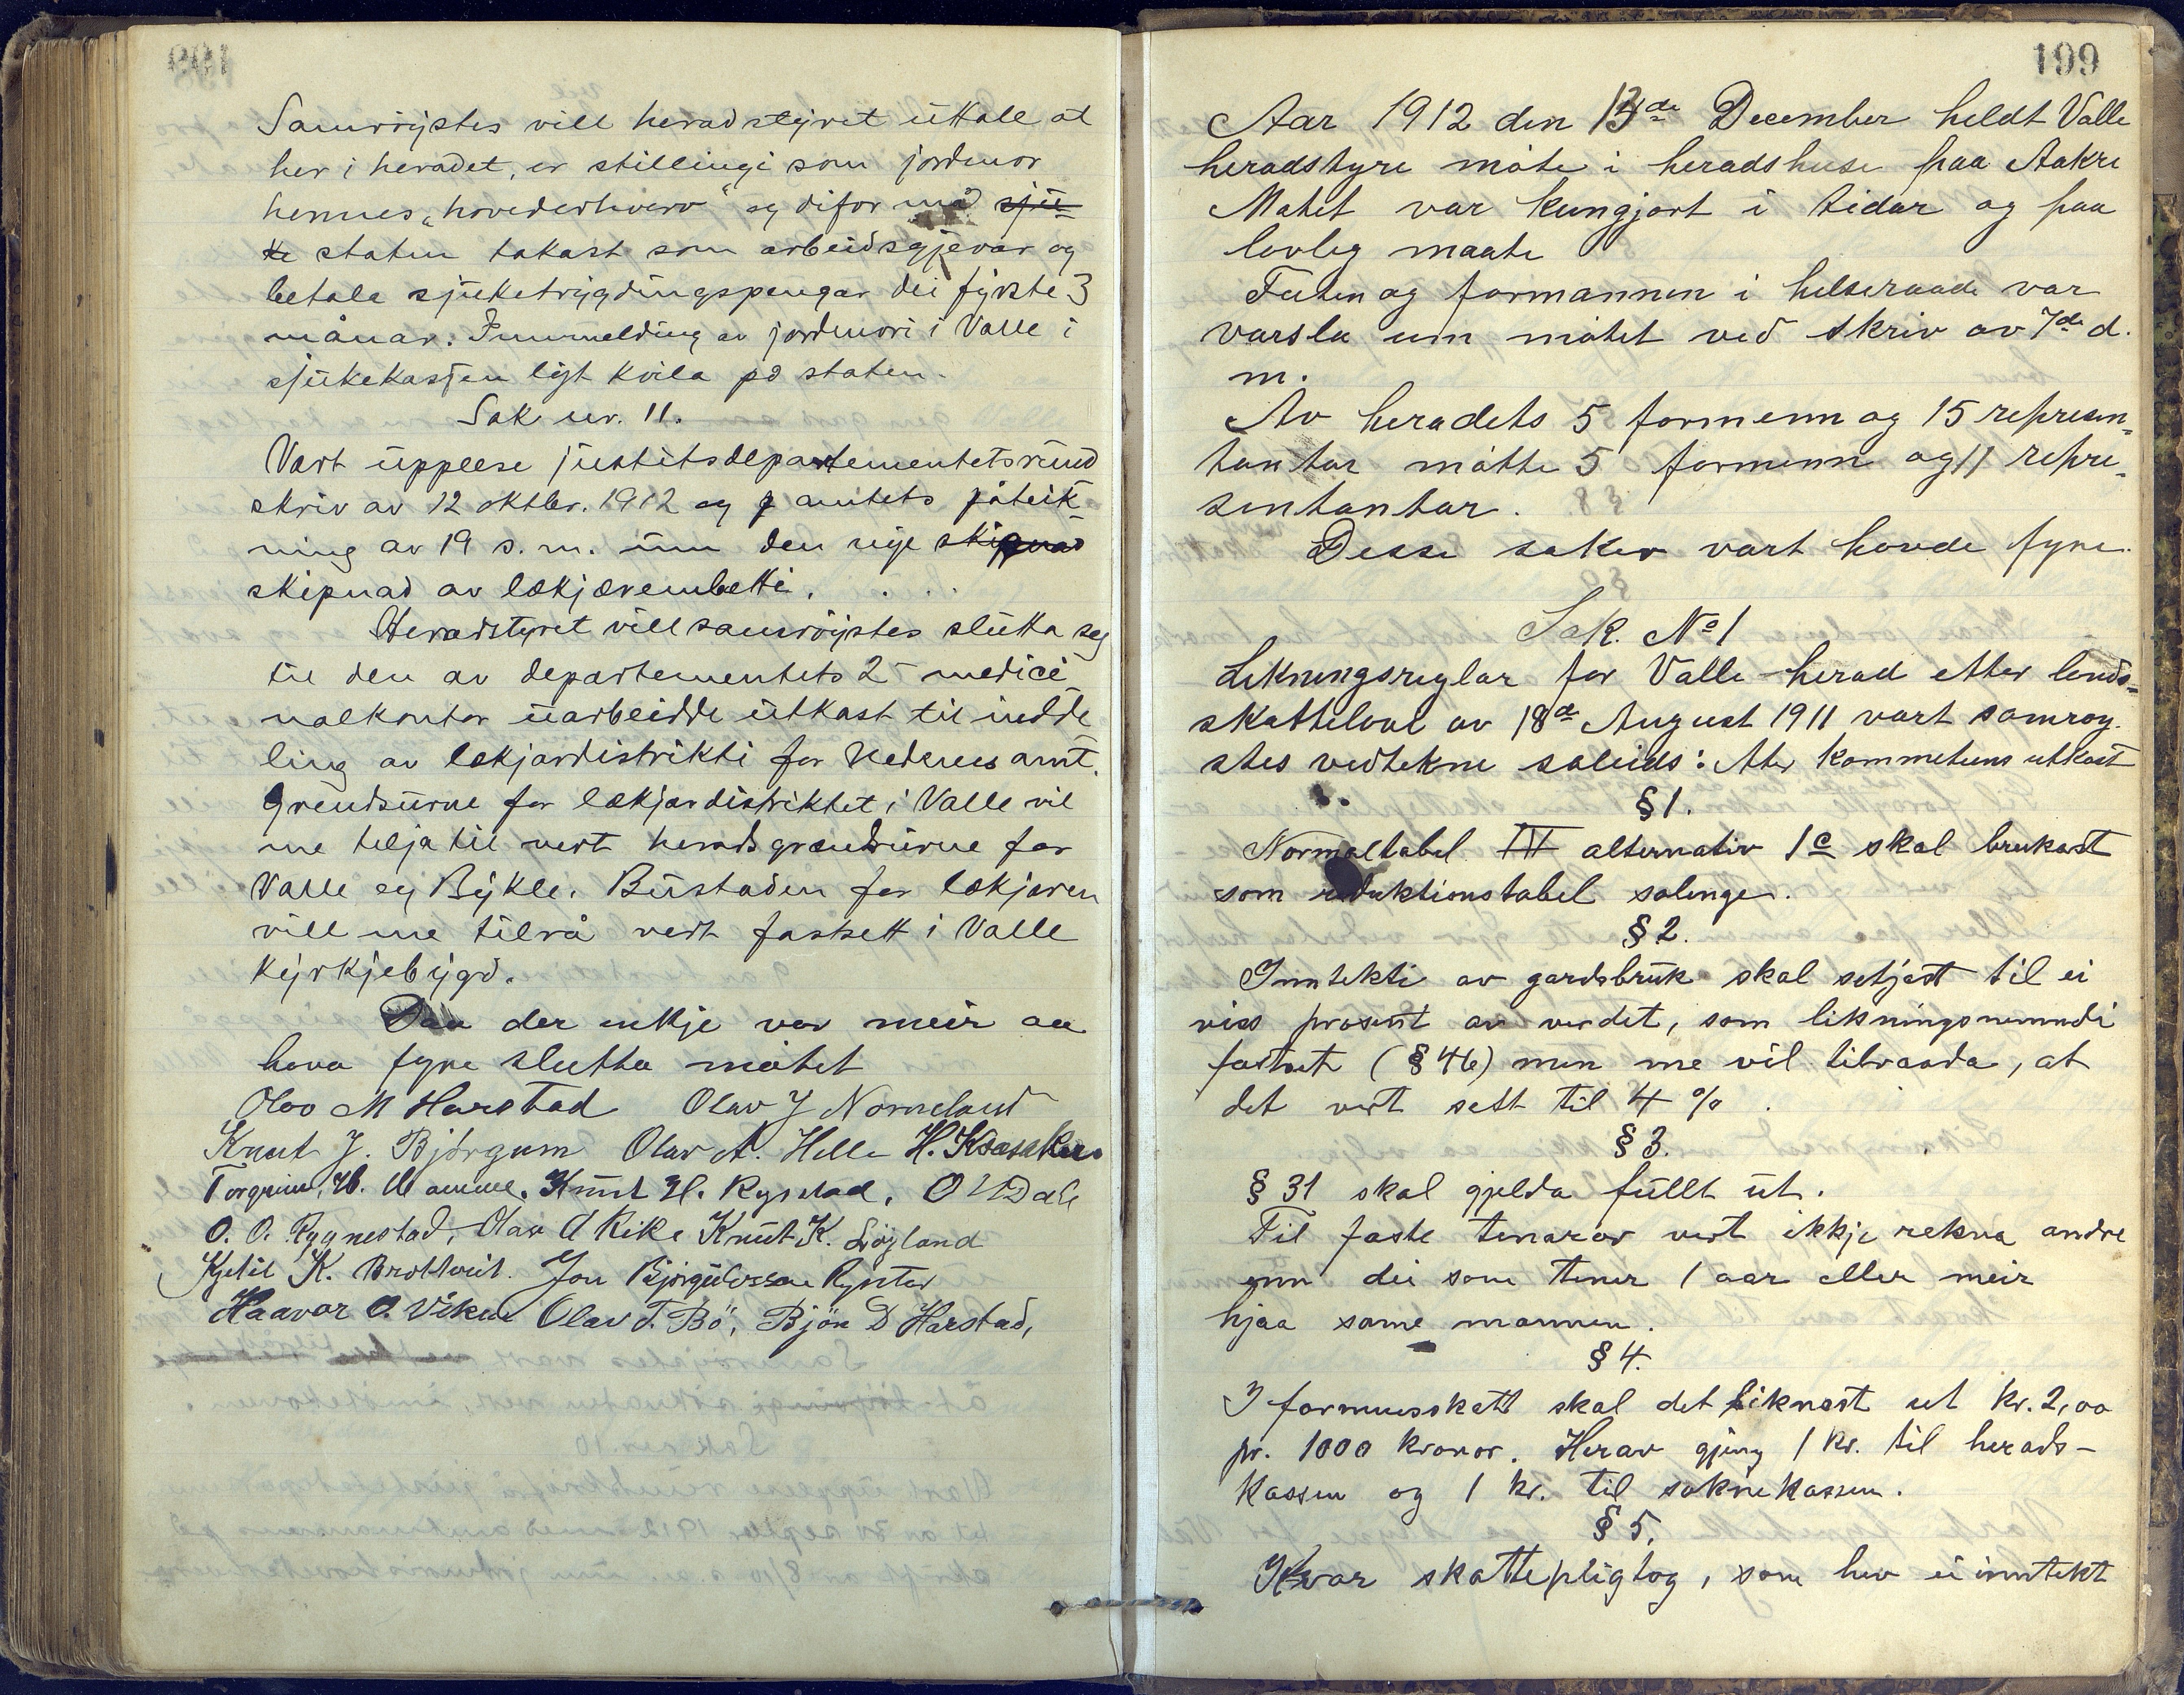 Samröystes vill heradstyret uttale at
her i heradet, er stillingi som jordmor
hennes „hovederhverv" og difor må sju-
ke staten takast som arbeidsgjevar og
betale sjuketrygdingspengar dei fyrste 3
månar. Innmelding av jordmori i Valle i
sjukekassen lyt kvila på staten.
Sak nr. 11.
Vart upplese justitsdepartementets rund
skriv av 12 oktbr. 1912 og amtets påteik-
ning av 19 s. m. um den nye skipnad
skipnad av lækjærembætti.
Heradstyret vill samröystes slutta seg
til den av departementets 2 medici
nalkontor uarbeidde utkast til indde
ling av lækjardistrikti for Nedenes amt.
Grendsurne for lækjardistriktet i Valle vil
me telja til vert heradsgrændsurne for
Valle og Bykle. Bustaden for lækjaren
vill me tilrå vert fastsett i Valle
kyrkjebygd.
Daa der inkje var meir aa
hava fyre slutta mötet
Olav M Harstad Olav J Nomeland
Knut J. Björgum Olav A. Helle H. Kåsåker
Torgrim H. Homme. Knut H. Rysstad. O U Dale
O. O. Rygnestad, Olav A Rike Knut K. Löyland
Kjetil K. Brottveit. Jon Björgulvsson Rysstad
Haavar O. Viken Olav T. Bö, Bjön D Harstad,
199
Aar 1912 den 13de December heldt Valle
heradstyre möte i heradshuse paa Aakre
Mötet var kungjort i tidar og paa
lovleg maate
Futen og formannen i helseraade var
varsla um mötet ved skriv av 7de d.
m.
Av heradets 5 formenn og 15 represen-
tantar mötte 5 formenn og 11 repre-
sentantar.
Desse saker vart havde fyre.
Sak. No 1
Likningsreglar for Valle herad etter lands-
skattelove av 18de August 1911 vart samröy-
stes vedtekne soleids: Ater Kommetuns utkast
§ 1.
Normaltabel III alternativ 1c skal brukast
som reduktionstabel solenge.
§ 2.
Inntekti av gardsbruk skal setjast til ei
viss prosent av verdet, som likningsnemndi
fastset (§ 46) men me vil tilraada, at
det vert sett til 4 %.
§ 3.
§ 31 skal gjelda fullt ut.
Til faste tenarar vert ikkje rekna andre
enn dei som tener 1 aar eller meir
hjaa same mannen.
§ 4.
I formuesskatt skal det liknast ut kr. 2,00
pr. 1000 kronor. Herav gjeng 1 kr. til herads-
kassen og 1 kr. til soknekassen.
§ 5.
Kvar skattepligtog, som hev ei inntekt